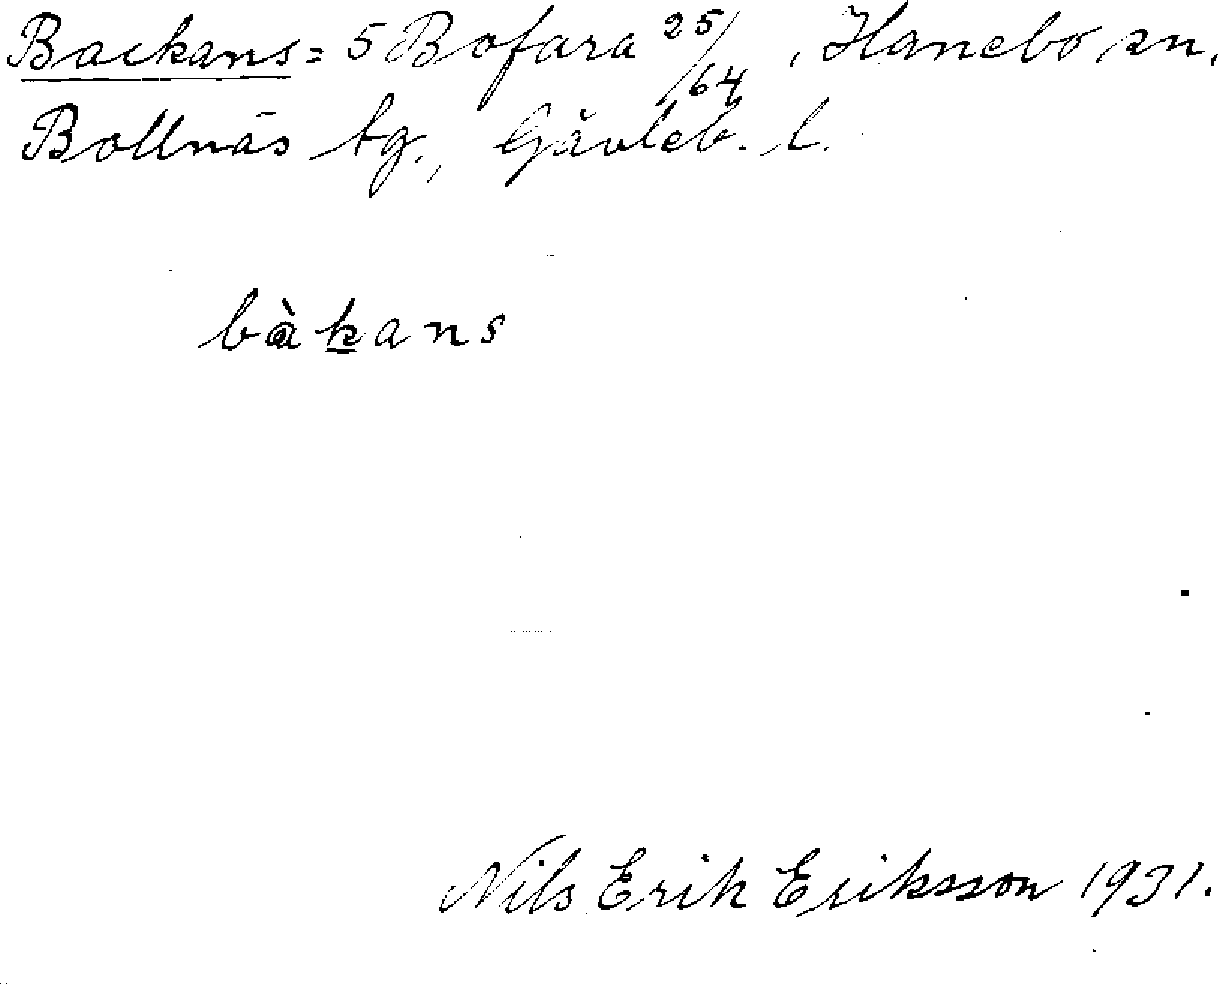 Backans = 5 Bofara 25/64, Hanebo sn,
Bollnäs tg., Gävleb. l.
bàkans
Nils Erik Eriksson 1931.